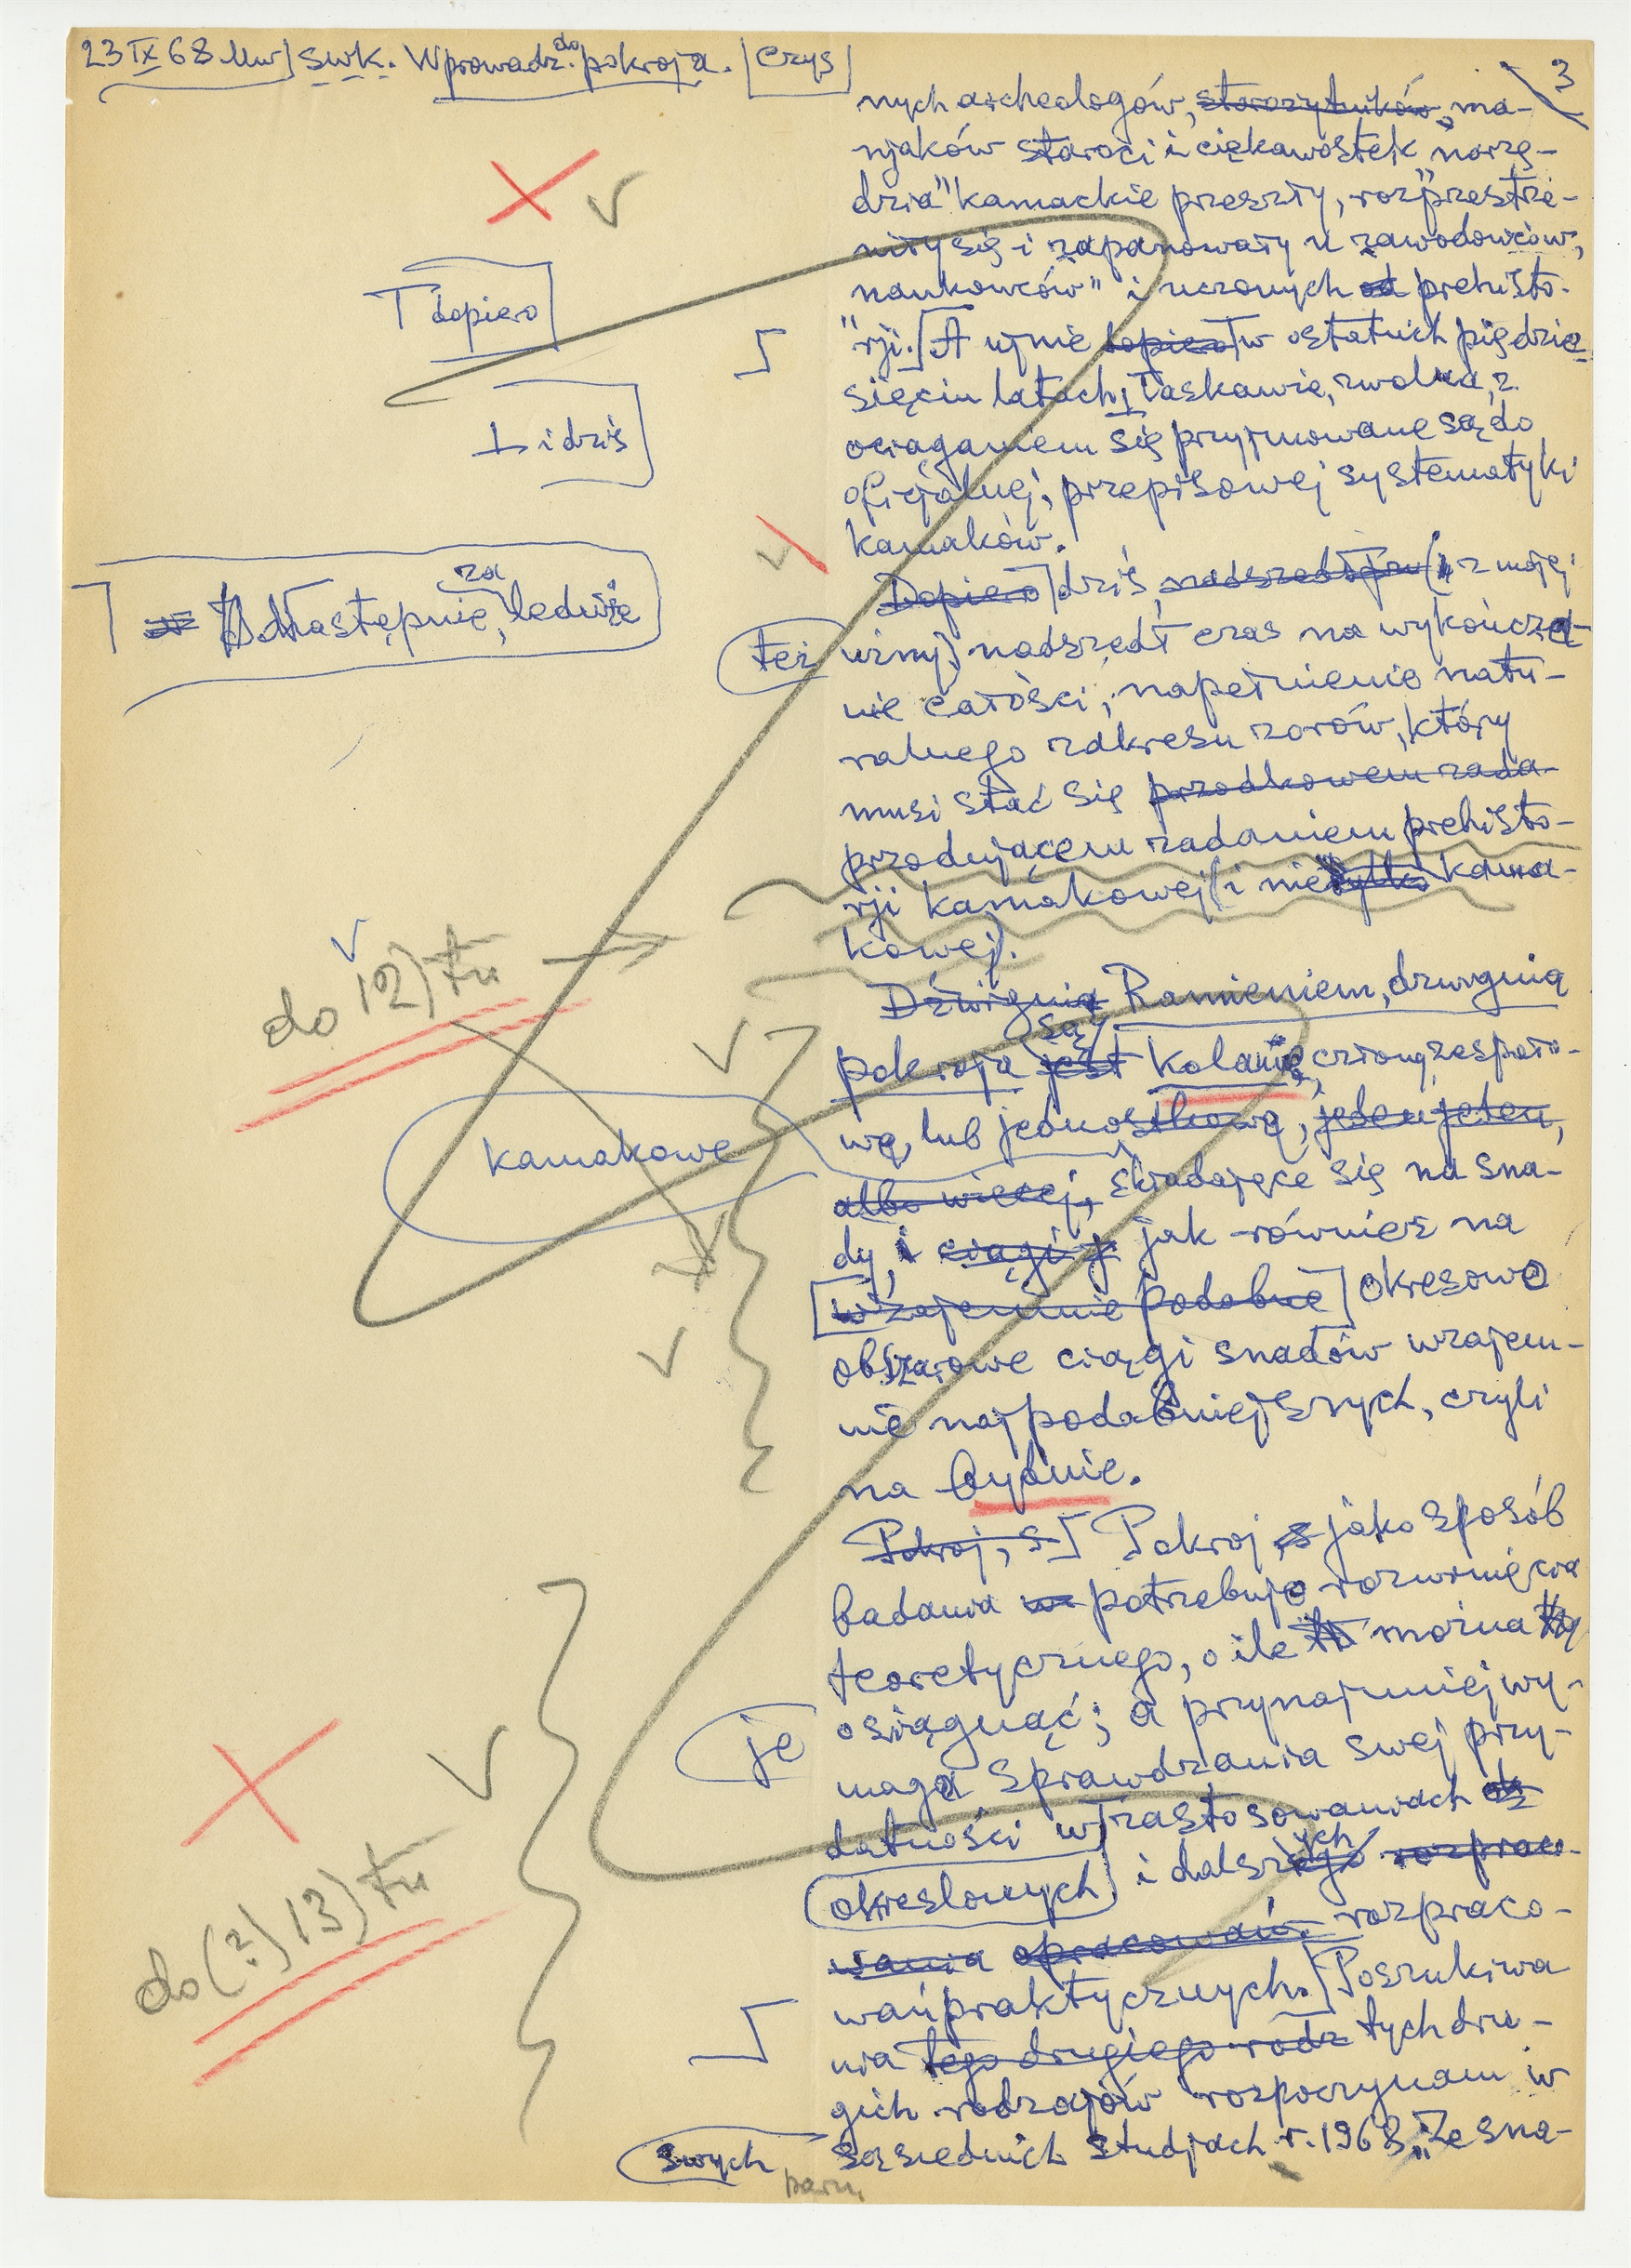 23 IX 68 Uw] swk. Wprowadz. do pokroja. [czys]
3
nych archeologów, starożytników, ma-
njaków staroci i ciękawostek „narzę-
dzia" kamackie przeszły, rozprzestrze-
niły się i zapanowały u zawodowców,
„naukowców" i uczonych od prehisto-
rji. [A ujnie dopiero] w ostatnich pięćdzie
sięciu latach, łaskawie, zwolna, z
ociąganiem się przyjmowane są do
oficjalnej, przepisowej systematyki
kamaków.
T dopiero
⊥ i dziś
Następnie, za ledwie
Dopiero] dziś, nadszedł (i z mojej
też
winy) nadszedł czas na wykończa-
nie całości, napełnienie natu-
ralnego zakresu zarów, który
musi stać się przodkowem zada-
przodującem zadaniem prehisto-
rji kamakowej (i nie tylko kama-
kowej).
do 12) tu →
Dźwignią Ramieniem, dzwignią
pokroja jest są Kolanie, człony zespoło-
we, lub jednostkowe, jeden jeden,
kamakowe
albo więcej, składające się na sna-
dy, i ciągi j jak również na
[wzajemnie podobne] okresowo
obszarowe ciągi snadów wzajem-
nie najpodobniejszych, czyli
na bydnie.
Pokroj, s] Pokroj, jako sposób
badania potrzebuje rozwinięcia
teoretycznego, o ile to można tą
je
osiągnąć; a przynajmniej wy-
maga sprawdzania swej przy-
datności w] zastosowaniach
określonych] i dalszego ych rozpraco-
wania opracowań. rozpraco-
wań praktycznych. [Poszukiwa
nia tego drugiego rodz tych dru-
gich rodzajów rozpoczynam w
swych
sąsiednich studjach r. 1968 „Ze sna-
do (?) 13) tu